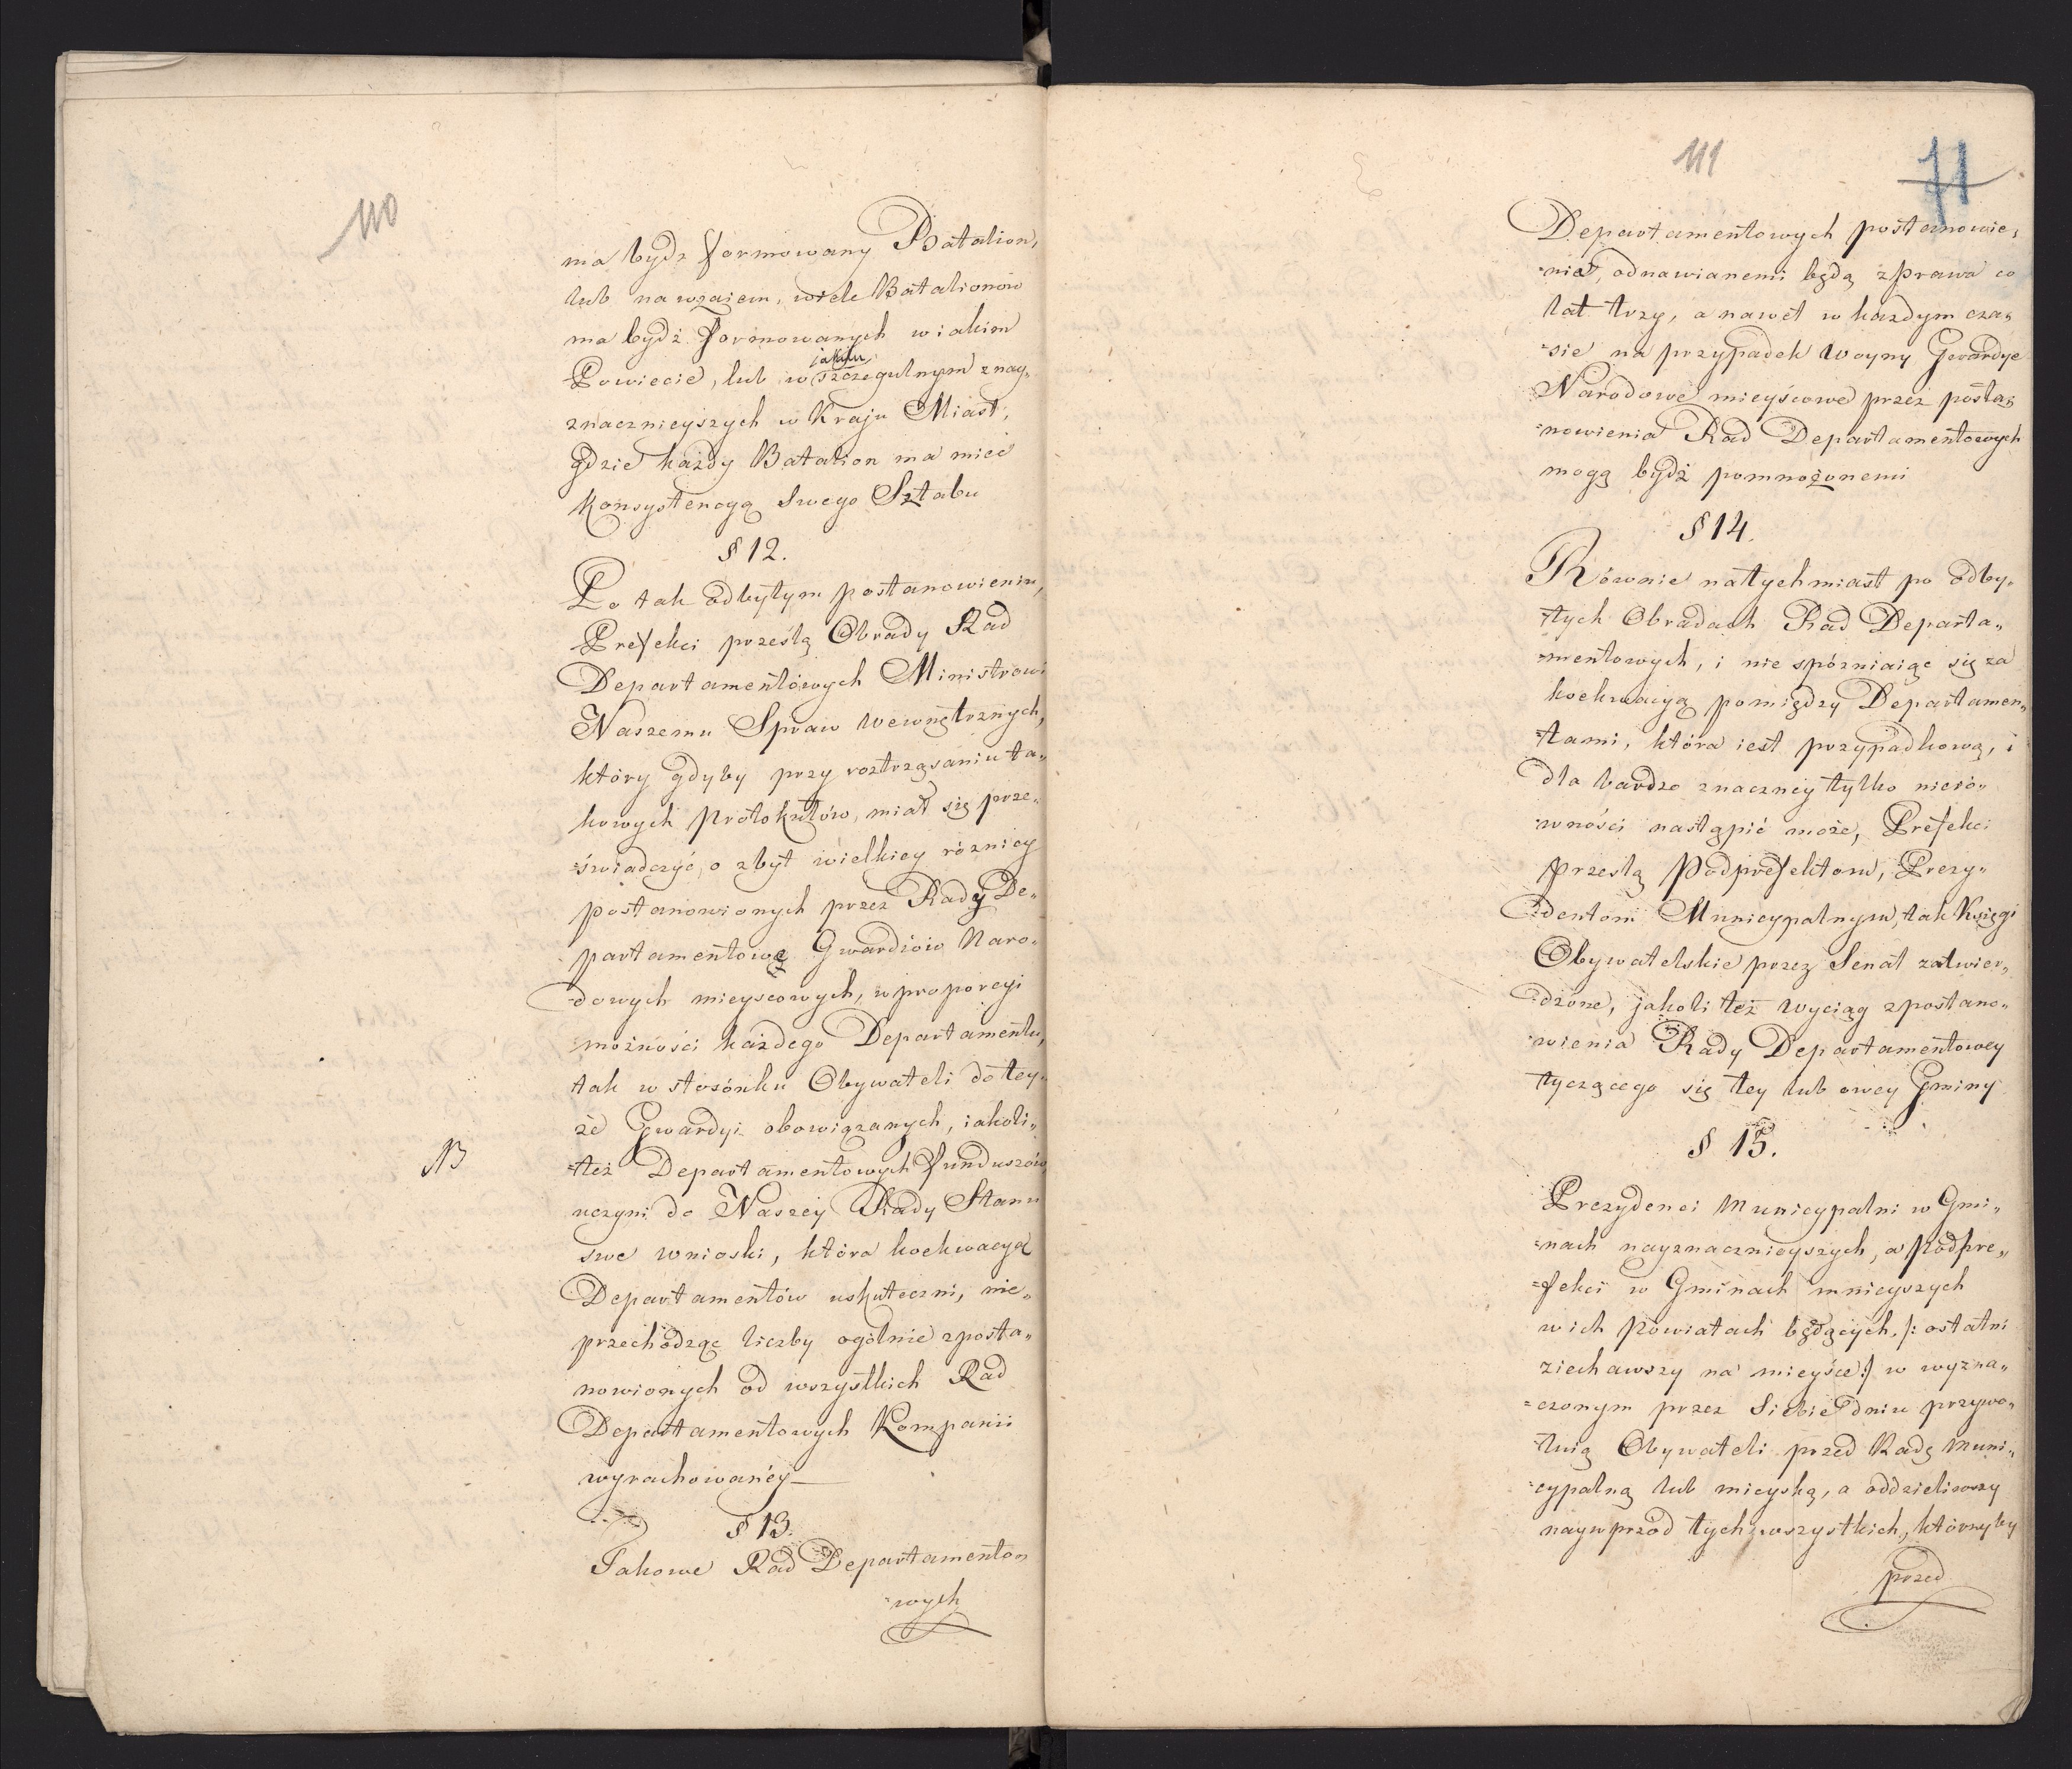 110
ma bydz formowany Batalion,
lub nawzaiem, wiele Batalionow
ma bydż formowanych w iakim
Powiecie, lub w jakim szczegulnym znay„
znacznieyszych w Kraju Miast,
gdzie każdy Batalion ma mieć
Konsystencyą Swego Sztabu
§ 12.
Po tak odbytym postanowieniu,
Prefekci prześlą Obrady Rad
Departamentówych Ministrowi
Naszemu Spraw Wewnętrznych,
który gdyby przy roztrząsaniu ta„
kowych Protokułów, miał się prze„
=świadczyć, o zbyt wielkiey różnicy
postanowionych przez Rady De„
partamentowe Gwardiów Naro„
dowych mieyscowych, w proporcyi
możności każdego Departamentu,
tak w stosónku Obywateli do tey„
że Gwardyi obowiązanych, iakoli„
NB
=też Departamentowych funduszów
uczyni do Naszey Rady Stanu
swe wnioski, która koekwacyą
Departamentów uskuteczni, nie„
przechodząc liczby ogólnie zposta„
nowionych od wszystkich Rad
Departamentowych Kompanii
wyrachowanéy
§ 13.
Takowe Rad Departamento„
=wych
111
71
Departamentowych postanowie„
=nia, odnawianemi będą zprawa co
lat trzy, a nawet w każdym cza„
=sie na przypadek Woyny Gwardye
Narodowe mieyścowe przez posta„
=nowienia Rad Departamentowych
mogą bydź pomnożonemi
§ 14.
Równie natychmiast po odby„
=tych Obradach Rad Departa„
=mentowych, i nie spózniaiąc się za
koekwacyą pomiędzy Departamen„
=tami, która iest przypadkową, i
dla bardzo znaczney tylko nieró„
=wności nastąpić może, Prefekci
prześlą Podprefektom, Prezy„
=dentom Municypalnym, tak Księgi
Obywatelskie przez Senat zatwier„
=dzone, jakoli też wyciąg zpostano„
=wienia Rady Departamentowey
tyczącego się tey lub owey Gminy
§ 15.
Prezydenci Municypalni w Gmi„
=nach nayznacznieyszych, a Podpre„
=fekci w Gminach mnieyszych
w ich Powiatach będących, /: ostatni
ziechawszy na mieyśce :/ w wyzna„
=czonym przez Siebie dniu przywo„
=łuią Obywateli przed Radę Muni„
=cypalną lub mieyską, a oddzieliwszy
naywprzód tych wszystkich, którzyby
przed